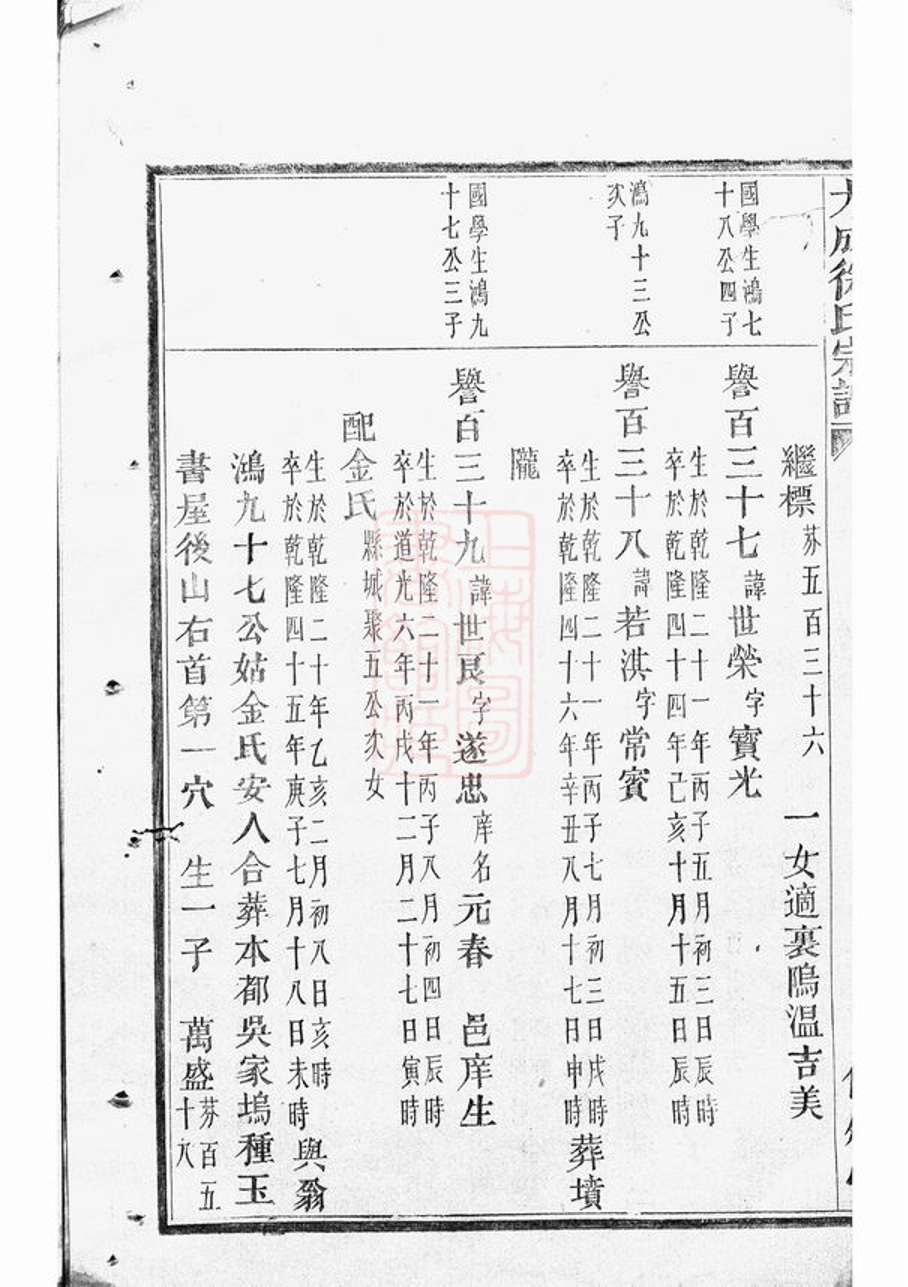 大成徐氏宗譜
繼標 芬五百三十六 一女適裏隖温吉美
國學生鴻七
十八公四子
譽百三十七諱世榮字寶光
生於乾隆二十一年丙子五月初三日辰時
卒於乾隆四十四年己亥十月十五日辰時
鴻九十三公
次子
譽百三十八諱若淇字常賓
生於乾隆二十一年丙子七月初三日戌時
卒於乾隆四十六年辛丑八月十七日申時葬墳
隴
國學生鴻九
十七公三子
譽百三十九諱世良字遂忠庠名元春 邑庠生
生於乾隆二十一年丙子八月初四日辰時
卒於道光六年丙戌十二月二十七日寅時
配金氏縣城聚五公次女
生於乾隆二十年乙亥二月初八日亥時
卒於乾隆四十五年庚子七月十八日未時與翁
鴻九十七公姑金氏安人合葬本都吳家塢種玉
書屋後山右首第一穴 生一子 萬盛芬百五十六